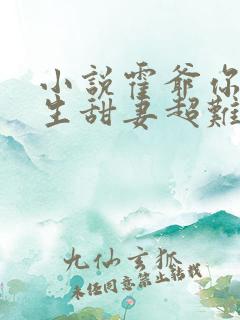 小說霍爺你
生甜妻超難
九仙玄狐
未经同意禁止转载